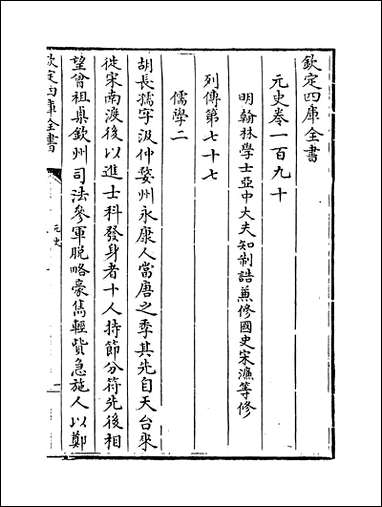 欽定四庫全書
元史卷一百九十
明翰林學士亞中大夫知制誥兼修國史宋濂等修
列傳第七十七
儒學二
胡長孺字汲仲婺州永康人當唐之季其先自天台來
徙宋南渡後以進士科發身者十人持節分符先後相
望曾祖㮚欽州司法參軍脱略豪雋輕貲急施人以鄭
欽定四庫全書
元史
一